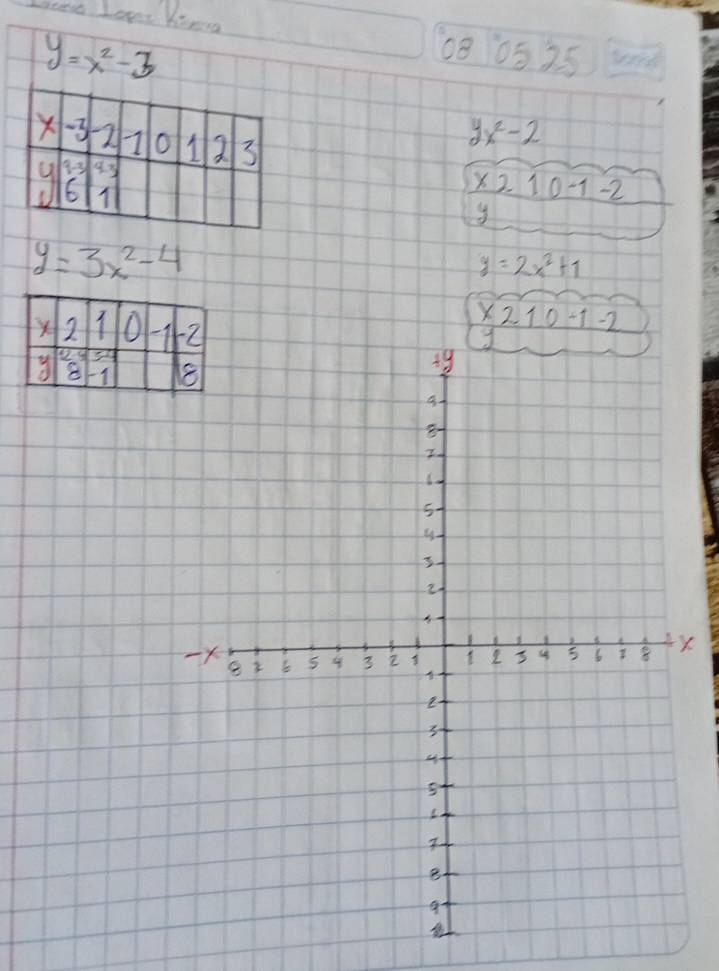 08 05 25
y = x² - 3
x -3 -2 -1 0 1 2 3
y 9-3 4-3
6 1
y = 3x² - 4
x 2 1 0 -1 -2
y 12-4 3-4
8 -1 8
yx² - 2
x 2 1 0 -1 -2
y
y = 2x² + 1
x 2 1 0 -1 -2
y
+y
9
8
7
6
5
4
3
2
1
-x 8 7 6 5 4 3 2 1 1 2 3 4 5 6 7 8 +x
1
2
3
4
5
6
7
8
9
10